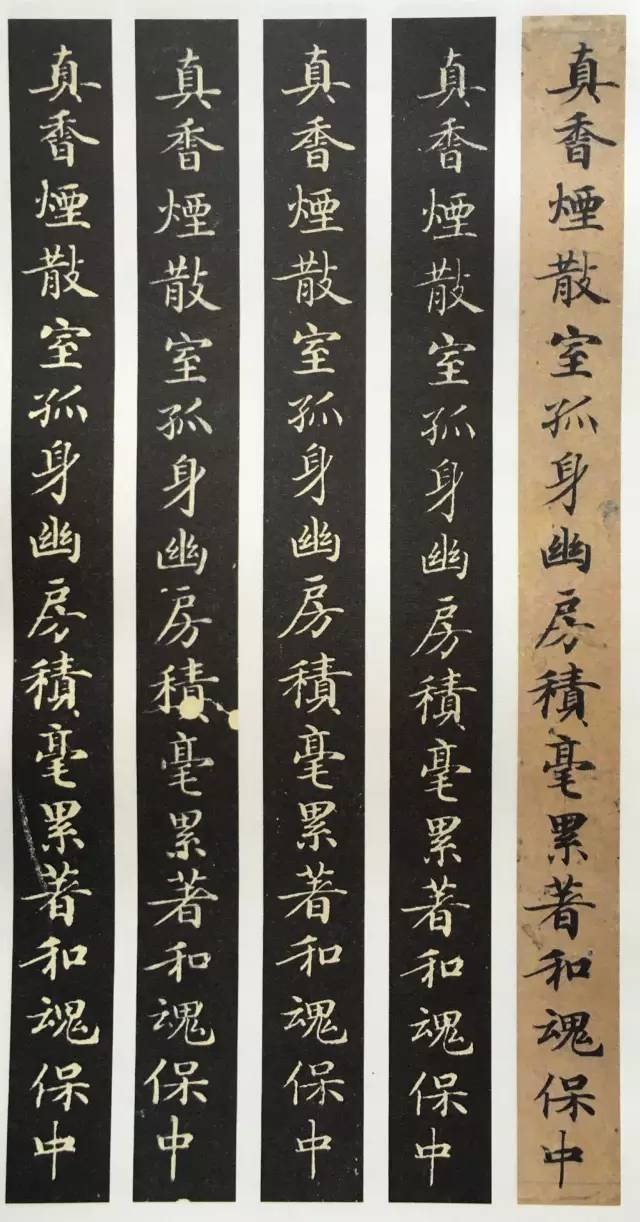 真香煙散室孤身幽房積毫累著和魂保中
真香煙散室孤身幽房積毫累著和魂保中
真香煙散室孤身幽房積毫累著和魂保中
真香煙散室孤身幽房積毫累著和魂保中
真香煙散室孤身幽房積毫累著和魂保中